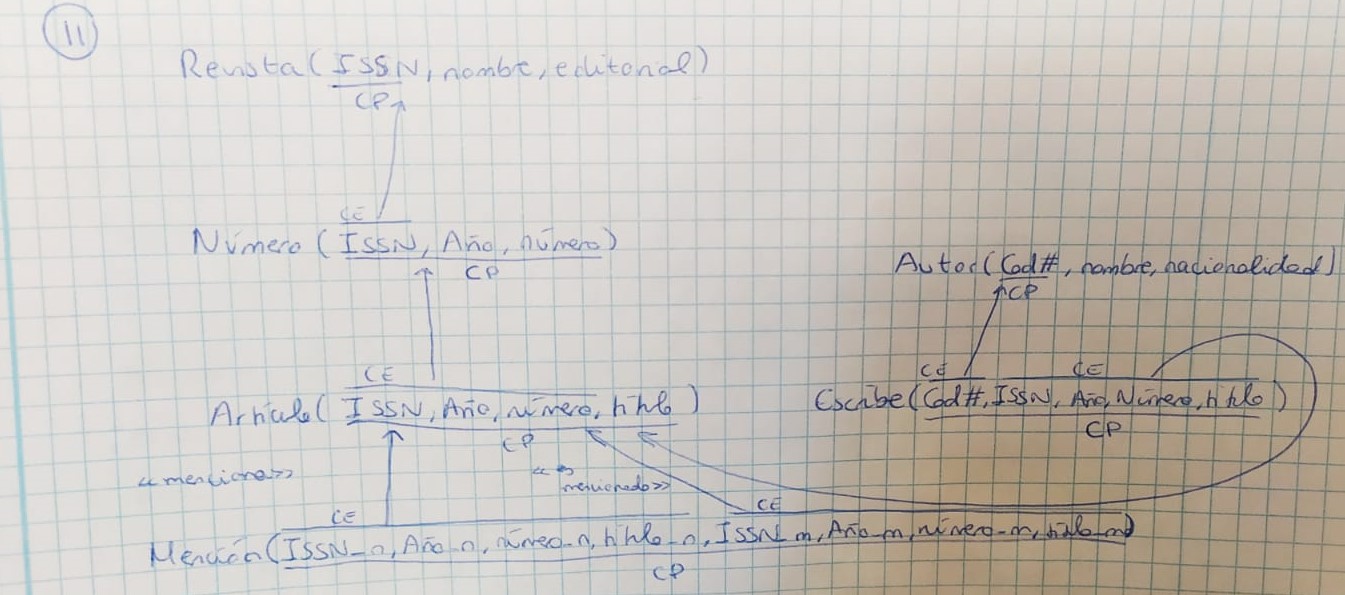 11
Revista (ISSN, nombre, editorial)
CP
CE
Número (ISSN, Año, número)
CP
Autor (Cod#, nombre, nacionalidad)
CP
CE
Artículo (ISSN, Año, número, título)
CP
CE CE
Escribe (Cod#, ISSN, Año, Número, título)
CP
<<menciona>>
<<es mencionado>>
CE CE
Mención (ISSN_n, Año_n, número_n, título_n, ISSN_m, Año_m, número_m, título_m)
CP